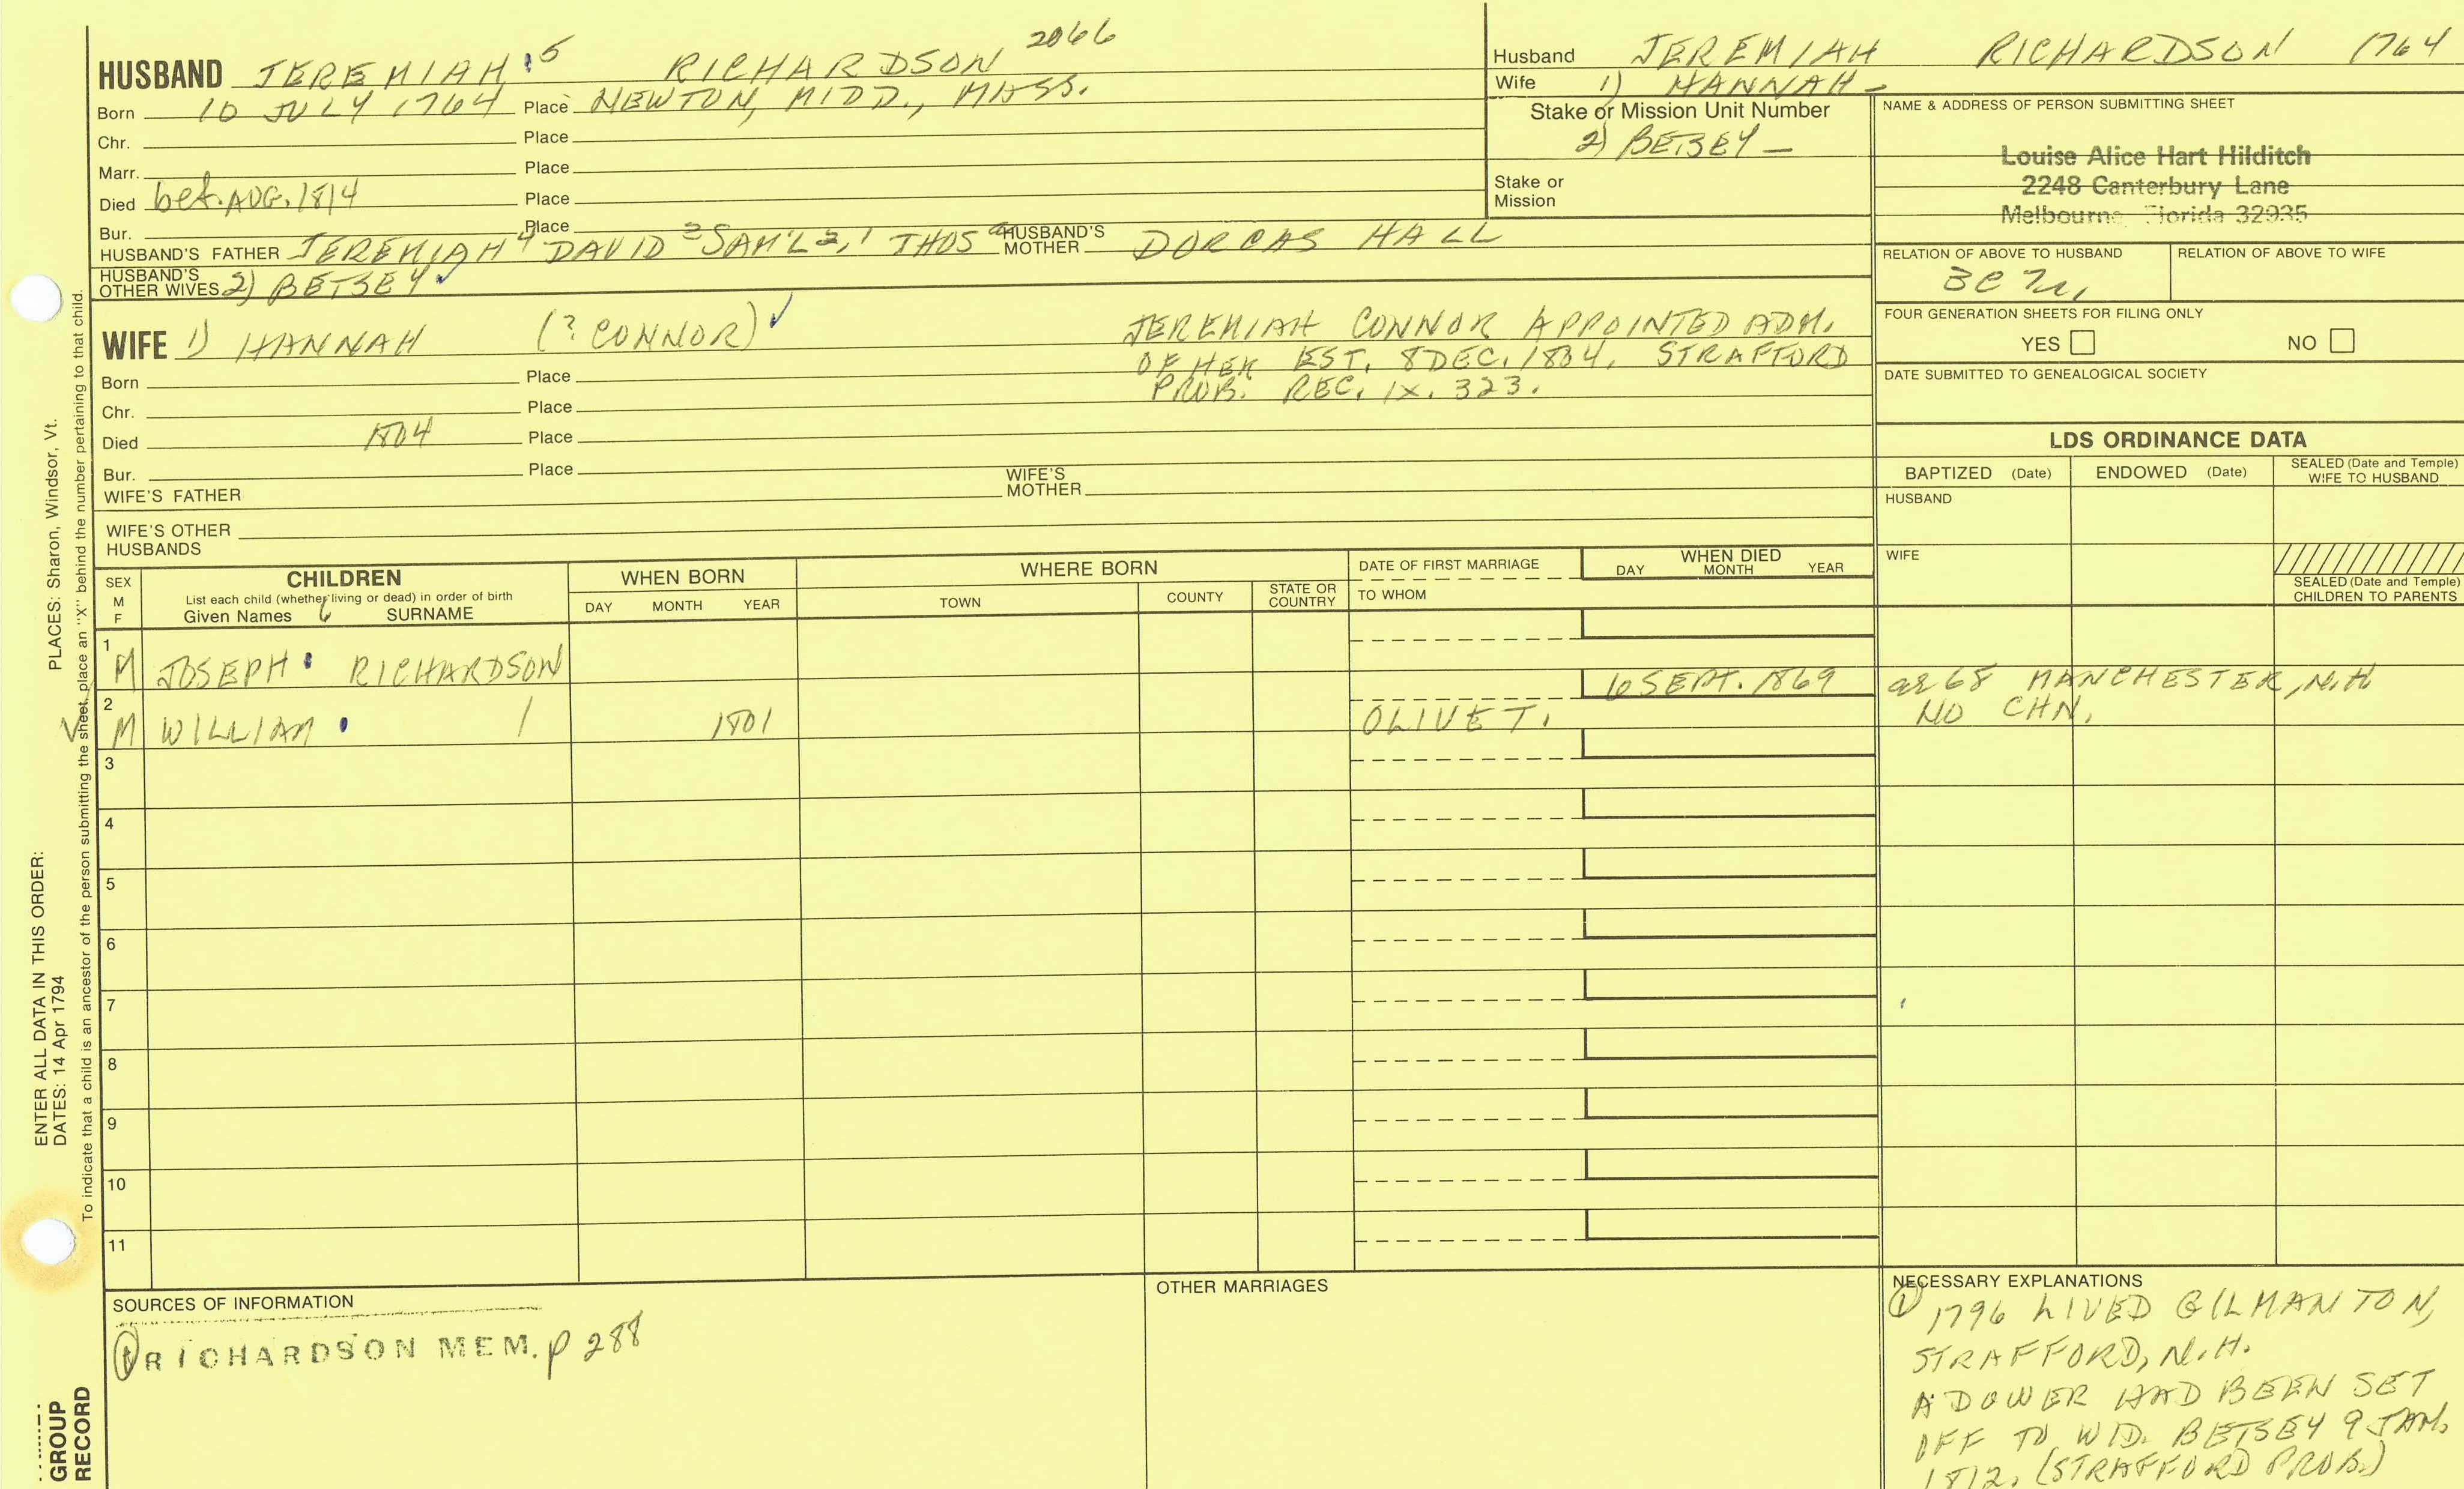 HUSBAND JEREMIAH 5 RICHARDSON 2066
Born 10 JULY 1764 Place NEWTON, MIDD., MASS.
Chr. Place
Marr. Place
Died bef. AUG. 1814 Place
Bur. Place
HUSBAND'S FATHER JEREMIAH 4 DAVID 3 SAM'L 2, 1 THOS HUSBAND'S MOTHER DORCAS HALL
HUSBAND'S OTHER WIVES 2) BETSEY
Husband JEREMIAH RICHARDSON 1764
Wife 1) HANNAH –
Stake or Mission Unit Number
2) BETSEY –
Stake or Mission
NAME & ADDRESS OF PERSON SUBMITTING SHEET
Louise Alice Hart Hilditch
2248 Canterbury Lane
Melbourne Florida 32935
RELATION OF ABOVE TO HUSBAND RELATION OF ABOVE TO WIFE
FOUR GENERATION SHEETS FOR FILING ONLY
YES NO
DATE SUBMITTED TO GENEALOGICAL SOCIETY
WIFE 1) HANNAH (? CONNOR)
JEREMIAH CONNOR APPOINTED ADM.
OF HER EST. 8 DEC. 1804, STRAFFORD
PROB. REC. IX. 323.
Born Place
Chr. Place
Died 1804 Place
Bur. Place
WIFE'S FATHER WIFE'S MOTHER
WIFE'S OTHER HUSBANDS
LDS ORDINANCE DATA
BAPTIZED (Date) ENDOWED (Date) SEALED (Date and Temple) WIFE TO HUSBAND
HUSBAND
WIFE
SEALED (Date and Temple) CHILDREN TO PARENTS
SEX M F
CHILDREN
List each child (whether living or dead) in order of birth
Given Names 6 SURNAME
WHEN BORN
DAY MONTH YEAR
WHERE BORN
TOWN COUNTY STATE OR COUNTRY
DATE OF FIRST MARRIAGE
TO WHOM
WHEN DIED
DAY MONTH YEAR
1 M JOSEPH RICHARDSON
2 M WILLIAM 1801 OLIVE T. SEPT. 1869 68 MANCHESTER, N.H.
NO CHN.
3
4
5
6
7
8
9
10
11
SOURCES OF INFORMATION
① RICHARDSON MEM. p 288
OTHER MARRIAGES
NECESSARY EXPLANATIONS
① 1796 LIVED GILMANTON,
STRAFFORD, N.H.
A DOWER HAD BEEN SET
OFF TO WID. BETSEY 9 JAN.
1812. (STRAFFORD PROB.)
ENTER ALL DATA IN THIS ORDER:
DATES: 14 Apr 1794 PLACES: Sharon, Windsor, Vt.
To indicate that a child is an ancestor of the person submitting the sheet, place an "X" behind the number pertaining to that child.
GROUP
RECORD